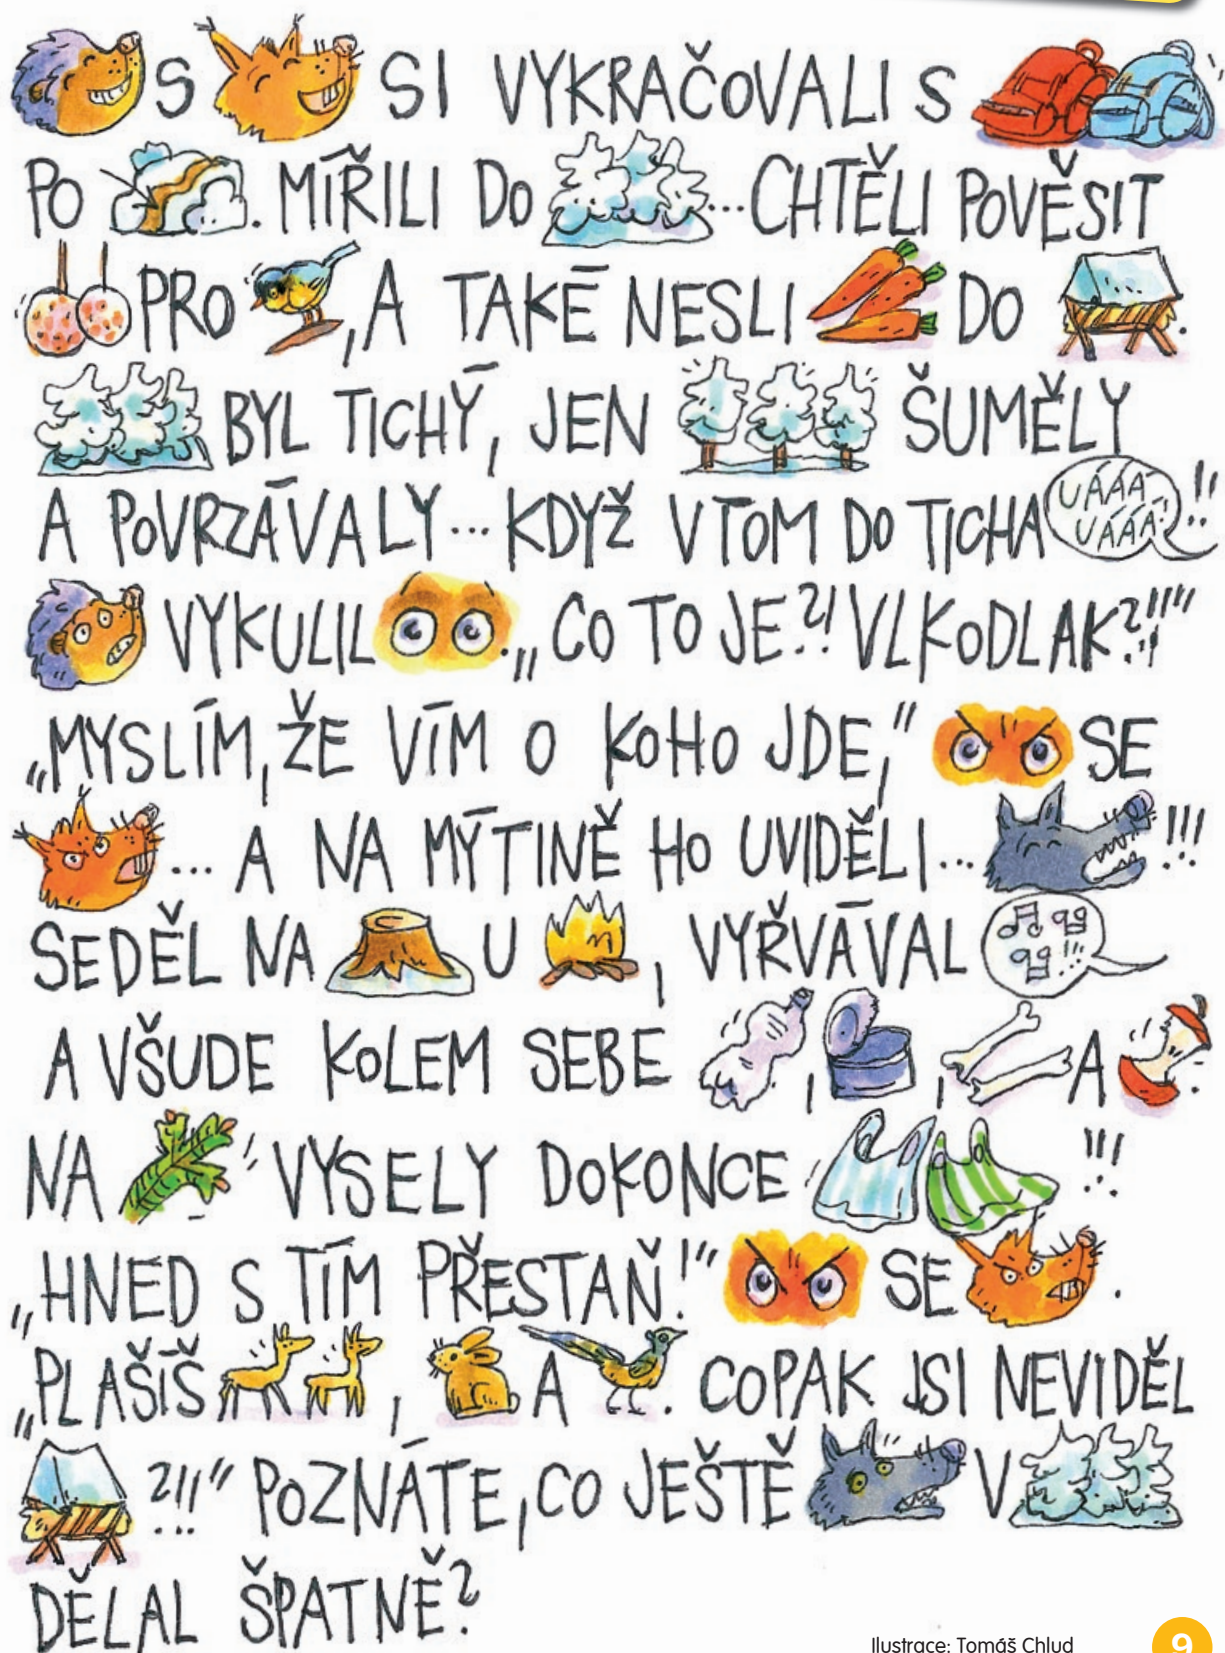 S SI VYKRAČOVALI S
PO . MÍŘILI DO ...CHTĚLI POVĚSIT
PRO , A TAKÉ NESLI DO .
BYL TICHÝ, JEN ŠUMĚLY
A POVRZÁVALY... KDYŽ VTOM DO TICHA UÁÁÁ UÁÁÁ! !!
VYKULIL . „CO TO JE?! VLKODLAK?!!"
„MYSLÍM, ŽE VÍM O KOHO JDE," SE
... A NA MÝTINĚ HO UVIDĚLI... !!!
SEDĚL NA U , VYŘVÁVAL !!!
A VŠUDE KOLEM SEBE , , A .
NA VYSELY DOKONCE !!!
„HNED S TÍM PŘESTAŇ!" SE .
„PLAŠÍŠ , A . COPAK JSI NEVIDĚL
?!!" POZNÁTE, CO JEŠTĚ V
DĚLAL ŠPATNĚ?
Ilustrace: Tomáš Chlud
9